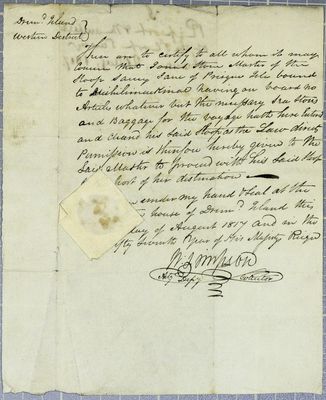 Drum.d Island
Western District
These are to certify to all whom it may
Concern that James Stone Master of the
Sloop Saucy Jane of Presque Isle bound
to Michilimackinac having on board no
Article whatever but the necessary Sea Stores
and Baggage for the Voyage hath here entered
and cleared his said Sloop as the Law directs
Permission is therefore hereby given to the
Said Master to proceed with his Said Sloop
Port of her destination
under my hand & Seal at the
house of Drum.d Island this
day of August 1817 and in the
fifty Seventh Year of His Majesty Reign
Thompson
Actg Depy Collector